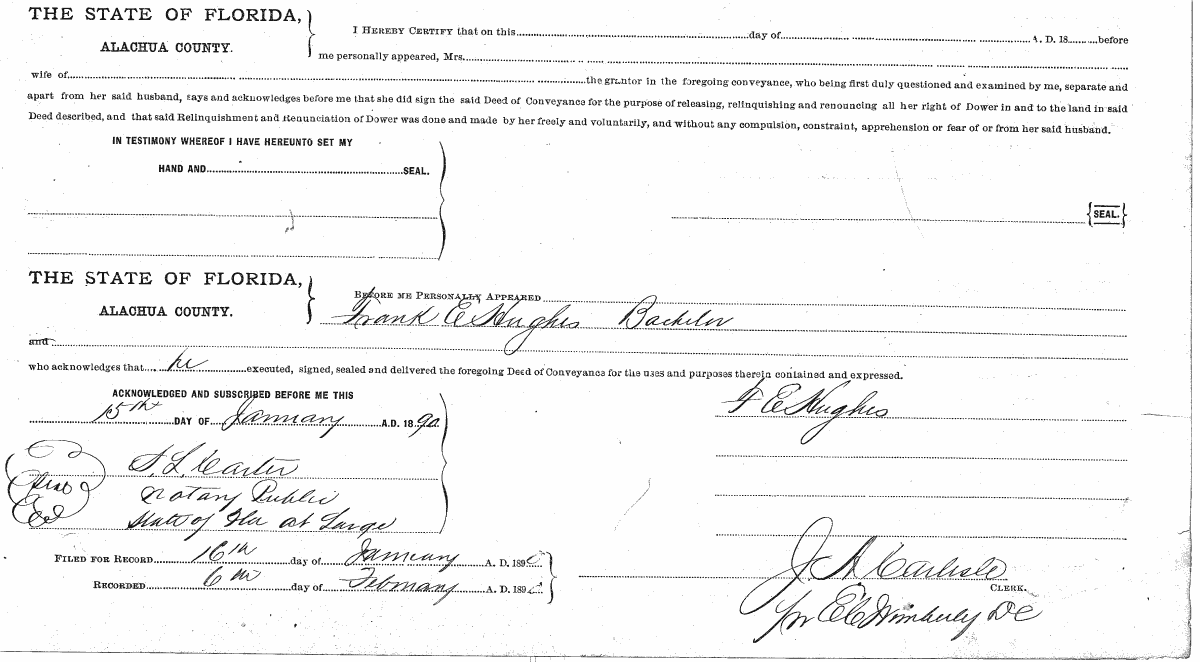 THE STATE OF FLORIDA,
ALACHUA COUNTY.
I HEREBY CERTIFY that on this day of A. D. 18 before
me personally appeared, Mrs.
wife of the grantor in the foregoing conveyance, who being first duly questioned and examined by me, separate and
apart from her said husband, says and acknowledges before me that she did sign the said Deed of Conveyance for the purpose of releasing, relinquishing and renouncing all her right of Dower in and to the land in said
Deed described, and that said Relinquishment and Renunciation of Dower was done and made by her freely and voluntarily, and without any compulsion, constraint, apprehension or fear of or from her said husband.
IN TESTIMONY WHEREOF I HAVE HEREUNTO SET MY
HAND AND SEAL.
SEAL.
THE STATE OF FLORIDA,
ALACHUA COUNTY.
BEFORE ME PERSONALLY APPEARED
Frank E Hughes Bachelor
and
who acknowledges that he executed, signed, sealed and delivered the foregoing Deed of Conveyance for the uses and purposes therein contained and expressed.
ACKNOWLEDGED AND SUBSCRIBED BEFORE ME THIS
15th DAY OF January A.D. 1890
F E Hughes
S. L. Carter
Notary Public
State of Fla at Large
FILED FOR RECORD 16th day of January A. D. 1890
RECORDED 6th day of February A. D. 189
J A Carlisle
CLERK.
pr E C Wimberly DC